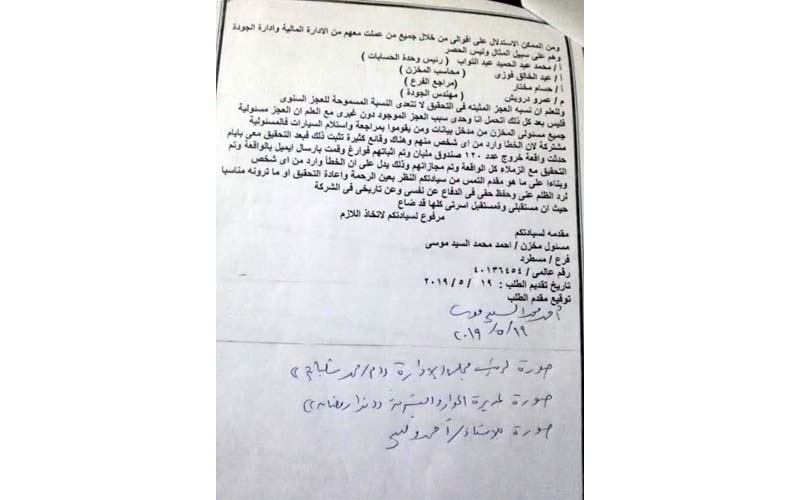 ومن الممكن الاستدلال على اقوالى من خلال جميع من عملت معهم من الادارة المالية وادارة الجودة
وهم على سبيل المثال وليس الحصر
أ / محمد عبد الحميد عبد التواب ( رئيس وحدة الحسابات )
أ / عبد الخالق فوزى ( محاسب المخزن )
أ / حسام مختار ( مراجع الفرع )
م / عمرو درويش ( مهندس الجودة )
وللعلم ان نسبه العجز المثبته فى التحقيق لا تتعدى النسبة المسموحة للعجز السنوى
فليس بعد كل ذلك اتحمل انا وحدى سبب العجز الموجود دون غيرى مع العلم ان العجز مسئولية
جميع مسئولى المخزن من مدخل بيانات ومن يقوموا بمراجعة واستلام السيارات فالمسئولية
مشتركة لان الخطأ وارد من اى شخص منهم وهناك وقائع كثيرة تثبت ذلك فبعد التحقيق معى بايام
حدثت واقعة خروج عدد ١٢٠ صندوق مليان وتم اثباتهم فوارغ وقمت بارسال ايميل بالواقعة وتم
التحقيق مع الزملاء كل الواقعة وتم مجازاتهم وذلك يدل على ان الخطأ وارد من اى شخص
وبناءا على ما هو مقدم التمس من سيادتكم النظر بعين الرحمة واعادة التحقيق او ما ترونه مناسبا
لرد الظلم على وحفظ حقى فى الدفاع عن نفسى وعن تاريخى فى الشركة
حيث ان مستقبلى ومستقبل اسرتى كلها قد ضاع
مرفوع لسيادتكم لاتخاذ اللازم
مقدمه لسيادتكم
مسئول مخزن / احمد محمد السيد موسى
فرع / مسطرد
رقم عالمى / ٤٠١٣٦٤٥٤
تاريخ تقديم الطلب : ١٩ / ٥ / ٢٠١٩
توقيع مقدم الطلب
أحمد محمد السيد موسى
١٩/٥/٢٠١٩
صورة لرئيس مجلس الادارة
صورة لمديرة الموارد البشرية
صورة للاستاذ / أحمد